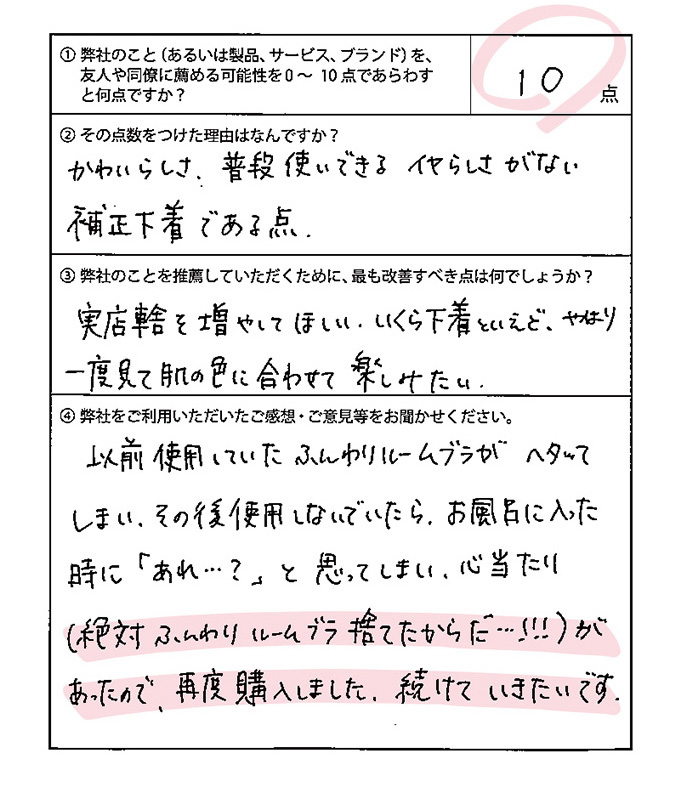 ① 弊社のこと（あるいは製品、サービス、ブランド）を、
友人や同僚に薦める可能性を0～10点であらわす
と何点ですか？
10 点
② その点数をつけた理由はなんですか？
かわいらしさ、普段使いできる イヤらしさがない
補正下着である点.
③ 弊社のことを推薦していただくために、最も改善すべき点は何でしょうか？
実店舗を増やしてほしい. いくら下着といえど、やはり
一度見て肌の色に合わせて楽しみたい.
④ 弊社をご利用いただいたご感想・ご意見等をお聞かせください。
以前使用していたふんわりルームブラがヘタって
しまい、その後使用しないでいたら、お風呂に入った
時に「あれ…？」と思ってしまい、心当たり
(絶対ふんわりルームブラ捨てたからだ…!!!)が
あったので、再度購入しました. 続けていきたいです.